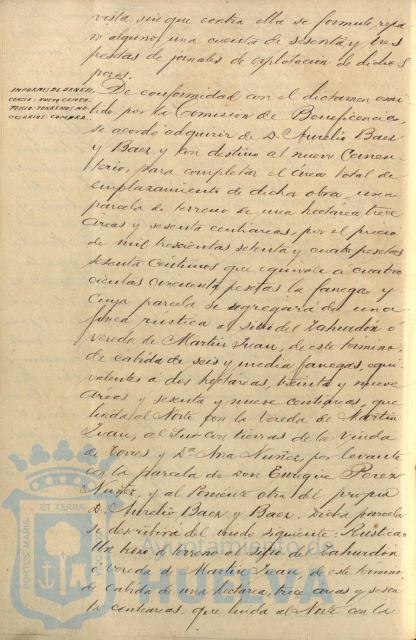 vista, sin que contra ella se formule repa
ro alguno, una cuenta de sesenta y tres
pesetas de jornales de explotación de dichos
pares.
INFORMES DE BENEFI-
CENCIA: NUEVO CEMEN-
TERIO: TERRENOS NE-
CESARIOS: COMPRA.
De conformidad con el dictamen emi
tido por la Comisión de Beneficencia,
se acordó adquirir de D. Aurelio Baez
y Baez, y con destino al nuevo Cemen-
terio, para completar el área total de
emplazamiento de dicha obra, una
parcela de terreno de una hectárea trece
áreas y sesenta centiáreas, por el precio
de mil trescientas setenta y cuatro pesetas
sesenta céntimos que equivale a cuatro
cientas cincuenta pesetas la fanega y
cuya parcela se segregará de una
finca rústica al sitio del Zahurdón ó
vereda de Martín Juan, de este término
de cabida de seis y media fanegas, equi
valentes a dos hectáreas, treinta y nueve
áreas y sesenta y nueve centiáreas, que
linda al Norte con la Vereda de Martín
Juan, al Sur con tierras de la Viuda
de Torres y Dª Ana Nuñez, por levante
con la parcela de Don Enrique Perez
Nuñez, y al Poniente otra del propio
D. Aurelio Baez y Baez. Dicha parcela
se describirá del modo siguiente: Rústica:
Un trozo de terreno al sitio del Zahurdón
ó vereda de Martín Juan, de este término
de cabida de una hectárea, trece áreas y sesen
ta centiáreas, que linda al Norte con la
PORTUS MARIS ET TERRAE
Ayuntamiento de
HUELVA